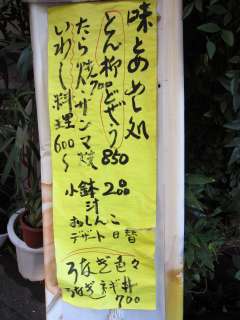 味とめし処
とん柳どぜう
700
たら焼サンマ焼 850
いわし料理 600〜
小鉢 200
汁
おしんこ
デザート 日替
うなぎ色々
うなぎ 丼 700